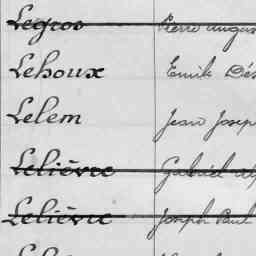 Legros Pierre
Lehoux Emile
Lelem Jean
Lelièvre Gabriel
Lelièvre Joseph Paul